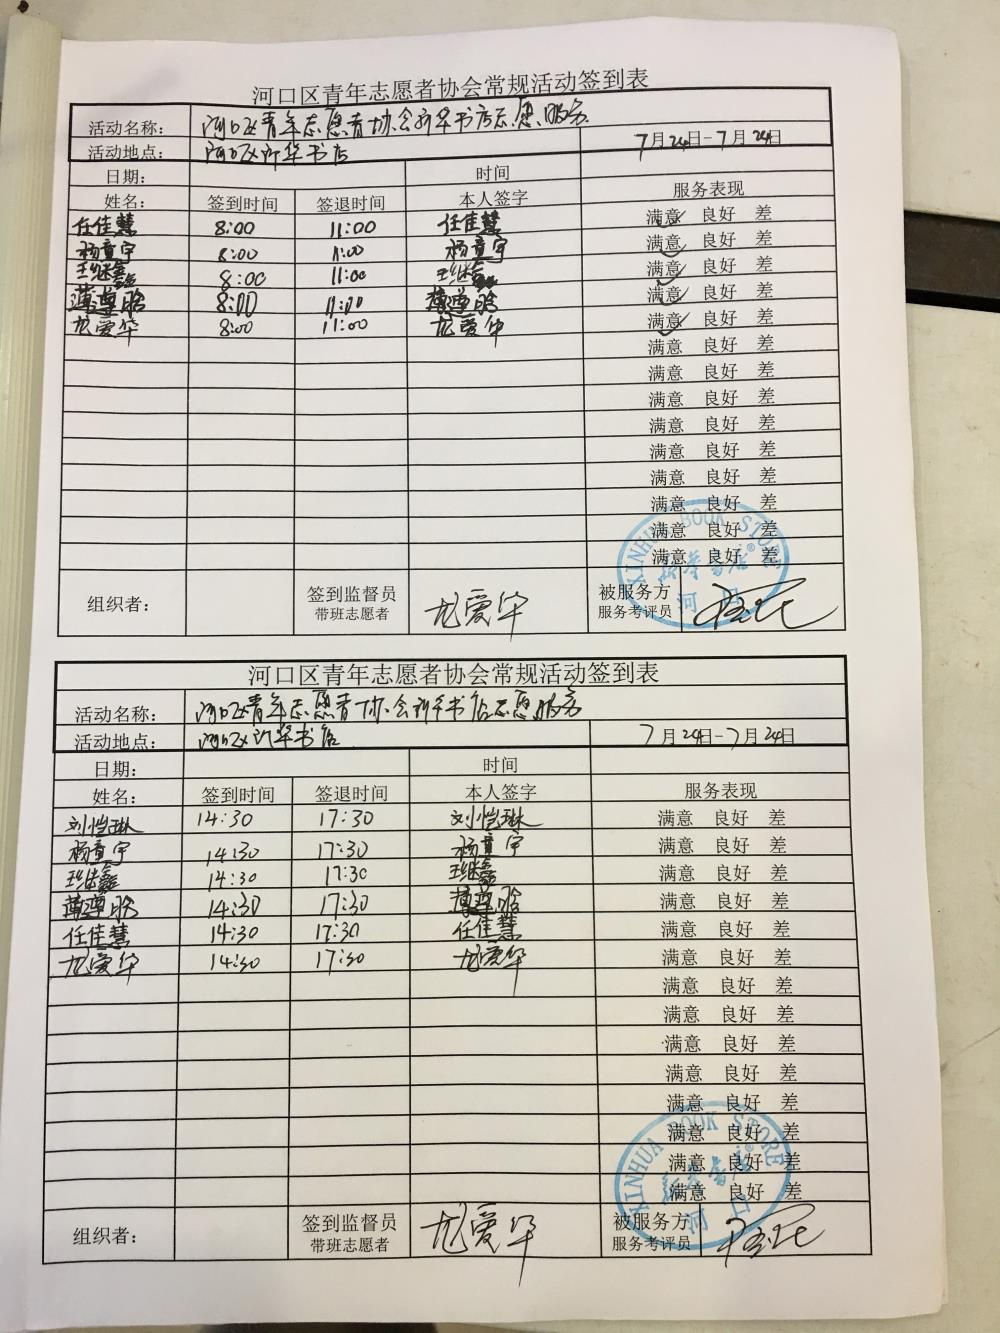 河口区青年志愿者协会常规活动签到表
活动名称： 河口区青年志愿者协会新华书店志愿服务
活动地点： 河口区新华书店 7月24日-7月24日
日期： 时间
姓名： 签到时间 签退时间 本人签字 服务表现
任佳慧 8:00 11:00 任佳慧 满意✓ 良好 差
杨童宇 8:00 11:00 杨童宇 满意✓ 良好 差
王继鑫 8:00 11:00 王继鑫 满意✓ 良好 差
8:00 11:00 满意✓ 良好 差
尤爱华 8:00 11:00 尤爱华 满意✓ 良好 差
满意 良好 差
满意 良好 差
满意 良好 差
满意 良好 差
满意 良好 差
满意 良好 差
满意 良好 差
满意 良好 差
满意 良好 差
XINHUA BOOK STORE
新华书店®
河口
组织者： 签到监督员 尤爱华 被服务方
带班志愿者 服务考评员
河口区青年志愿者协会常规活动签到表
活动名称： 河口区青年志愿者协会新华书店志愿服务
活动地点： 河口区新华书店 7月24日-7月24日
日期： 时间
姓名： 签到时间 签退时间 本人签字 服务表现
刘恺琳 14:30 17:30 刘恺琳 满意 良好 差
杨童宇 14:30 17:30 杨童宇 满意 良好 差
王继鑫 14:30 17:30 王继鑫 满意 良好 差
14:30 17:30 满意 良好 差
任佳慧 14:30 17:30 任佳慧 满意 良好 差
尤爱华 14:30 17:30 尤爱华 满意 良好 差
满意 良好 差
满意 良好 差
满意 良好 差
满意 良好 差
满意 良好 差
满意 良好 差
满意 良好 差
满意 良好 差
XINHUA BOOK STORE
新华书店®
河口
组织者： 签到监督员 尤爱华 被服务方
带班志愿者 服务考评员